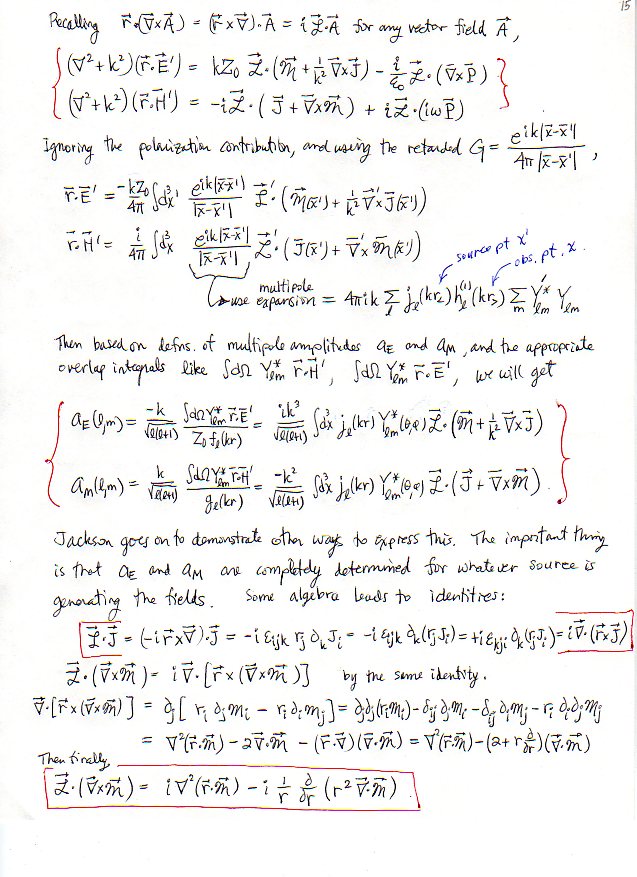 15
Recalling r⃗·(∇⃗×A⃗) = (r⃗×∇⃗)·A⃗ = i ℒ⃗·A⃗ for any vector field A⃗,
(∇²+k²)(r⃗·E⃗') = kZ₀ ℒ⃗·(m⃗ + 1/k² ∇⃗×J⃗) − i/ε₀ ℒ⃗·(∇⃗×P⃗)
(∇²+k²)(r⃗·H⃗') = −iℒ⃗·(J⃗+∇⃗×m⃗) + iℒ⃗·(iωP⃗)
Ignoring the polarization contribution, and using the retarded G = e^{ik|x⃗−x⃗'|} / 4π|x⃗−x⃗'| ,
r⃗·E⃗' = −kZ₀/4π ∫d³x' e^{ik|x⃗−x⃗'|}/|x⃗−x⃗'| ℒ⃗'·(m⃗(x⃗') + 1/k² ∇⃗'×J⃗(x⃗'))
r⃗·H⃗' = i/4π ∫d³x' e^{ik|x⃗−x⃗'|}/|x⃗−x⃗'| ℒ⃗'·(J⃗(x⃗') + ∇⃗'×m⃗(x⃗'))
source pt x' obs. pt. x.
use multipole expansion = 4πik Σ_l j_l(kr<) h_l^{(1)}(kr>) Σ_m Y'*_lm Y_lm
Then based on defns. of multipole amplitudes a_E and a_M, and the appropriate
overlap integrals like ∫dΩ Y*_lm r⃗·H⃗', ∫dΩ Y*_lm r⃗·E⃗', we will get
a_E(l,m) = −k/√l(l+1) ∫dΩ Y*_lm r⃗·E⃗' / Z₀ f_l(kr) = ik³/√l(l+1) ∫d³x j_l(kr) Y*_lm(θ,φ) ℒ⃗·(m⃗ + 1/k² ∇⃗×J⃗)
a_M(l,m) = k/√l(l+1) ∫dΩ Y*_lm r⃗·H⃗' / g_l(kr) = −k²/√l(l+1) ∫d³x j_l(kr) Y*_lm(θ,φ) ℒ⃗·(J⃗ + ∇⃗×m⃗).
Jackson goes on to demonstrate other ways to express this. The important thing
is that a_E and a_M are completely determined for whatever source is
generating the fields. Some algebra leads to identities:
ℒ⃗·J⃗ = (−i r⃗×∇⃗)·J⃗ = −i ε_ijk r_j ∂_k J_i = −i ε_ijk ∂_k(r_j J_i) = +i ε_kji ∂_k(r_j J_i) = i∇⃗·(r⃗×J⃗)
ℒ⃗·(∇⃗×m⃗) = i ∇⃗·[r⃗×(∇⃗×m⃗)] by the same identity.
∇⃗·[r⃗×(∇⃗×m⃗)] = ∂_j[ r_i ∂_j m_i − r_i ∂_i m_j ] = ∂_j∂_j(r_i m_i) − δ_ij ∂_j m_i − δ_ij ∂_i m_j − r_i ∂_i ∂_j m_j
= ∇²(r⃗·m⃗) − 2∇⃗·m⃗ − (r⃗·∇⃗)(∇⃗·m⃗) = ∇²(r⃗·m⃗) − (2+r ∂/∂r)(∇⃗·m⃗)
Then finally
ℒ⃗·(∇⃗×m⃗) = i ∇²(r⃗·m⃗) − i 1/r ∂/∂r (r² ∇⃗·m⃗)